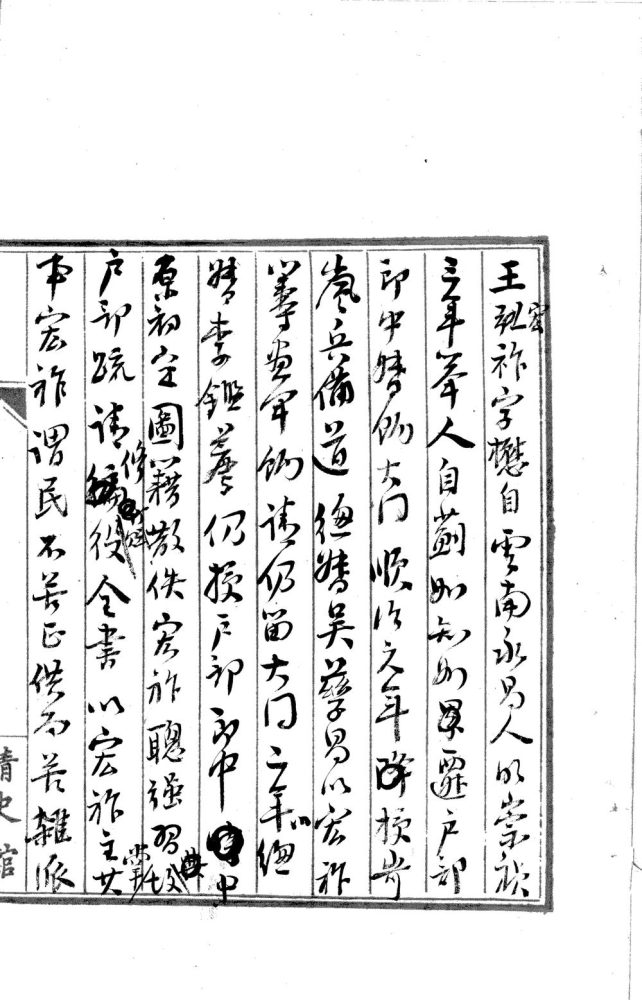 王弘祚字懋自雲南永昌人明崇禎
宏
三年舉人自薊州知州累遷户部
郎中督餉大同順治元年降授岢
嵐兵備道總督吳孳昌以宏祚
籌畫軍餉請仍留大同二年總
督李鑑薦仍授户部郎中中
原初定圖籍散佚宏祚聰强習掌故
户部疏請修賦役全書以宏祚主其
事宏祚謂民不苦正供而苦雜派
清史館